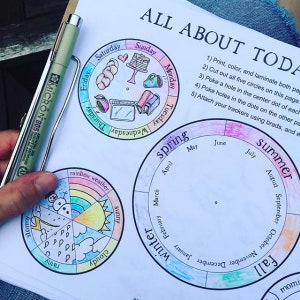 ALL ABOUT TODA
1) Print, color, and laminate both pages
2) Cut out all five circles on this page
3) Poke a hole in the center dot of each
4) Poke holes in the dots on the other pa
5) Attach your trackers using brads, and
Saturday
Sunday
Monday
Tuesday
Wednesday
Thursday
Friday
spring
summer
fall
winter
January
February
March
April
May
June
July
August
September
October
November
December
rainbow weather
sunny
cloudy
rainy
MICRON